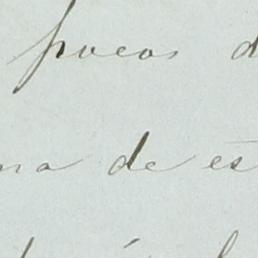 pocos d
na de es